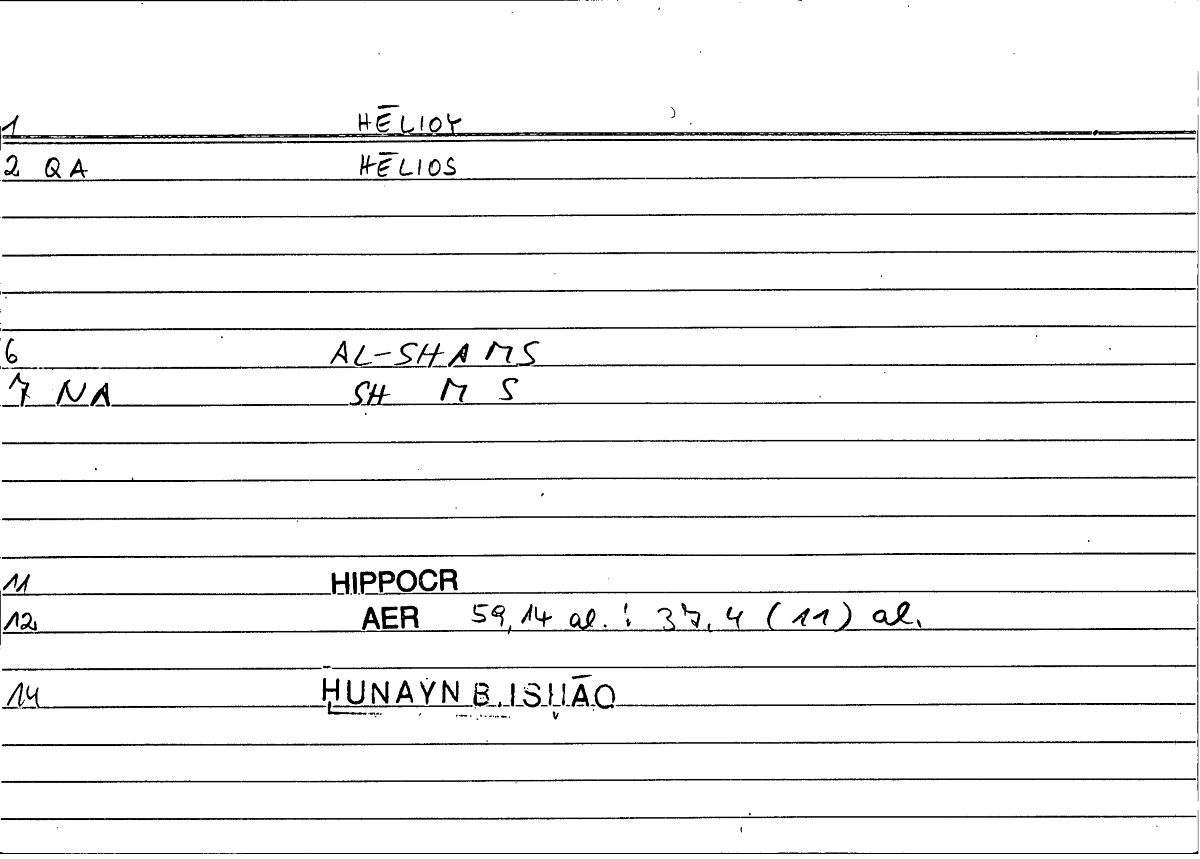 1 HĒLIOY
2 QA HĒLIOS
6 AL-SHAMS
7 NA SH M S
11 HIPPOCR
12. AER 59,14 al. : 37,4 (11) al.
14 ḤUNAYN B. ISḤĀQ